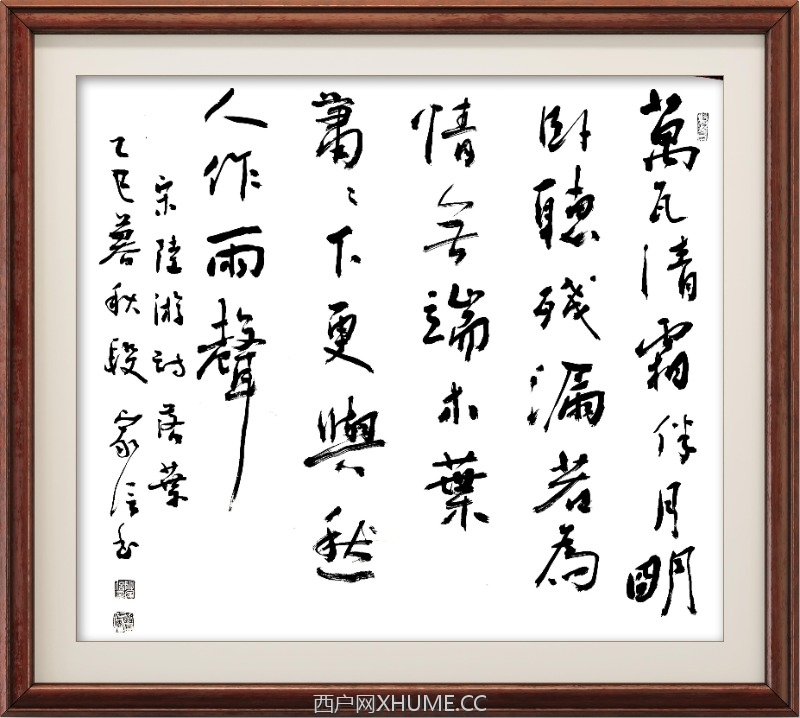 萬瓦清霜伴月明
卧聽殘漏若為
情無端木葉
蕭〻下更與愁
人作雨聲
宋陸游詩落葉
乙巳暮秋段家信書
西户网XHUME.CC